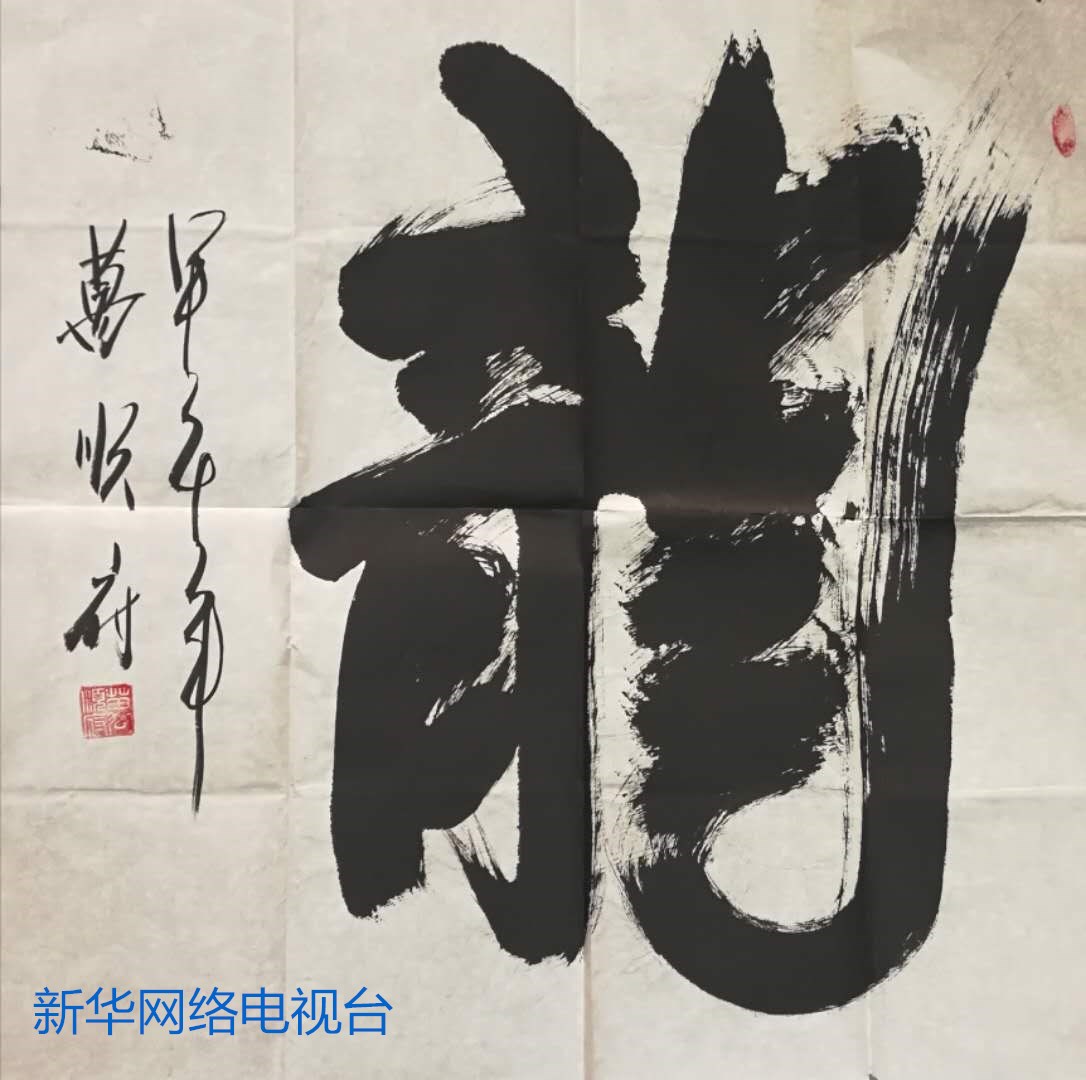 龍
甲午年
萬順府
新华网络电视台